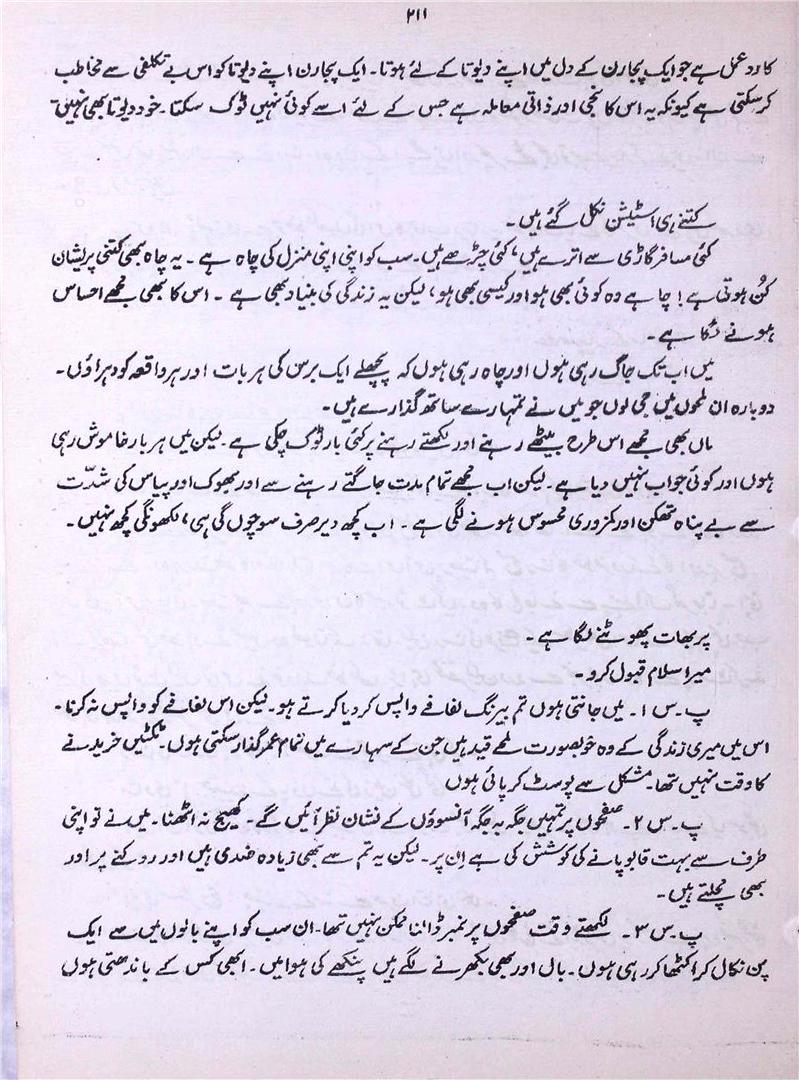 ۲۱۱
کا ردِ عمل ہے جو ایک پجارن کے دل میں اپنے دیوتا کے لئے ہوتا۔ ایک پجارن اپنے دیوتا کو اس بے تکلفی سے مخاطب
کر سکتی ہے کیونکہ یہ اس کا نجی اور ذاتی معاملہ ہے جس کے لئے اسے کوئی نہیں ٹوک سکتا۔ خود دیوتا بھی نہیں۔
کتنے ہی اسٹیشن نکل گئے ہیں۔
کئی مسافر گاڑی سے اترے ہیں، کئی چڑھے ہیں۔ سب کو اپنی اپنی منزل کی چاہ ہے۔ یہ چاہ بھی کتنی پریشان
کُن ہوتی ہے! چاہے وہ کوئی بھی ہو اور کیسی بھی ہو، لیکن یہ زندگی کی بنیاد بھی ہے۔ اس کا بھی مجھے احساس
ہونے لگا ہے۔
میں اب تک جاگ رہی ہوں اور چاہ رہی ہوں کہ پچھلے ایک برس کی ہر بات اور ہر واقعہ کو دہراؤں۔
دوبارہ ان لمحوں میں جی لوں جو میں نے تمہارے ساتھ گذارے ہیں۔
ماں بھی مجھے اس طرح بیٹھے رہنے اور لکھتے رہنے پر کئی بار ٹوک چکی ہے۔ لیکن میں ہر بار خاموش رہی
ہوں اور کوئی جواب نہیں دیا ہے۔ لیکن اب مجھے تمام مدت جاگتے رہنے سے اور بھوک اور پیاس کی شدّت
سے بے پناہ تھکن اور کمزوری محسوس ہونے لگی ہے۔ اب کچھ دیر صرف سوچوں گی ہی، لکھونگی کچھ نہیں۔
پربھات پھوٹنے لگا ہے۔
میرا سلام قبول کرو۔
پ۔س ۱۔ میں جانتی ہوں تم بیرنگ لفافے واپس کر دیا کرتے ہو۔ لیکن اس لفافے کو واپس نہ کرنا۔
اس میں میری زندگی کے وہ خوبصورت لمحے قید ہیں جن کے سہارے میں تمام عمر گذار سکتی ہوں۔ ٹکٹیں خریدنے
کا وقت نہیں تھا۔ مشکل سے پوسٹ کر پائی ہوں
پ۔س ۲۔ صفحوں پر تمہیں جگہ بہ جگہ آنسوؤں کے نشان نظر آئیں گے۔ کھیج نہ اٹھنا۔ میں نے تو اپنی
طرف سے بہت قابو پانے کی کوشش کی ہے اِن پر۔ لیکن یہ تم سے بھی زیادہ ضدی ہیں اور روکنے پر اور
بھی مچلتے ہیں۔
پ۔س ۳۔ لکھتے وقت صفحوں پر نمبر ڈالنا ممکن نہیں تھا۔ ان سب کو اپنے بالوں میں سے ایک
پن نکال کر اکٹھا کر رہی ہوں۔ بال اور بھی بکھرنے لگے ہیں پنکھے کی ہوا میں۔ ابھی کس کے باندھتی ہوں